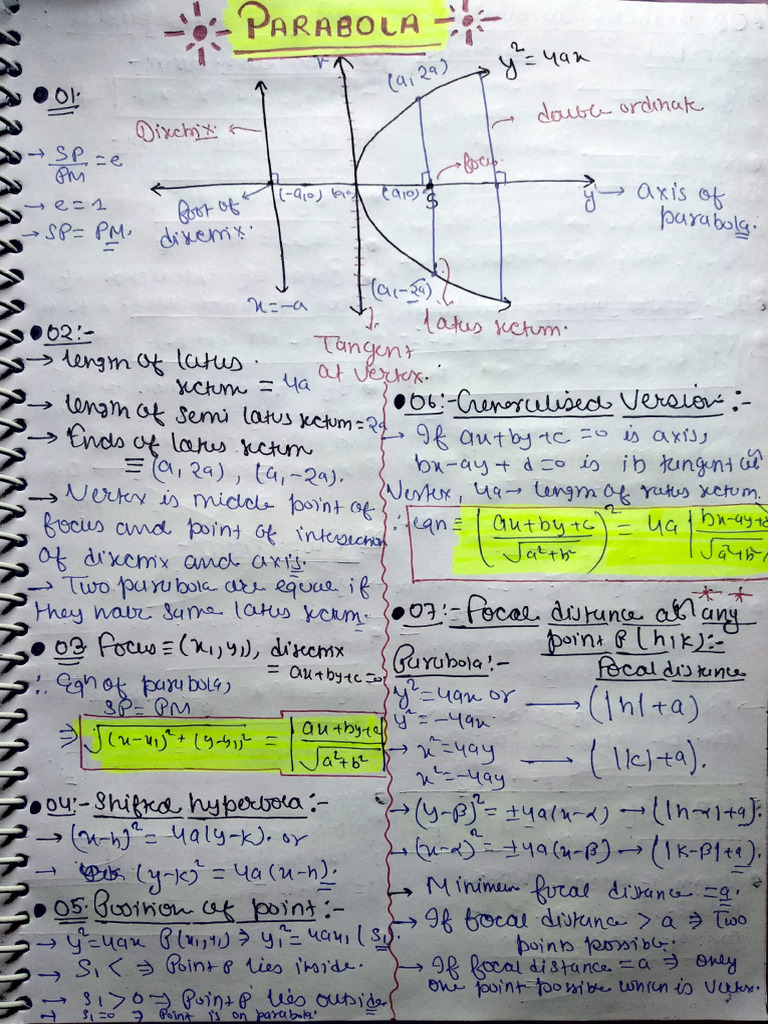 PARABOLA
01:
→ SP/PM = e
→ e = 1
→ SP = PM.
Directrix
foot of
directrix.
x = -a
(-a,0)
(0,0)
(a,0)
S
focus
(a, 2a)
(a, -2a)
y² = 4ax
double ordinate
y → axis of
parabola.
latus rectum.
Tangent
at vertex.
02:-
→ length of latus
rectum = 4a
→ length of semi latus rectum = 2a
→ Ends of latus rectum
≡ (a, 2a), (a, -2a).
→ Vertex is middle point of
focus and point of intersection
of directrix and axis.
→ Two parabola are equal if
they have same latus rectum.
03 Focus ≡ (x₁, y₁), directrix
= ax+by+c=0
∴ Eqn of parabola,
SP = PM
⇒ √((x-x₁)² + (y-y₁)²) = |ax+by+c / √(a²+b²)|
04:- Shifted hyperbola:-
→ (x-h)² = 4a(y-k). or
→ (y-k)² = 4a(x-h).
05: Position of point:-
→ y² = 4ax P(x₁,y₁) ⇒ y₁² = 4ax₁ (S₁)
→ S₁ < ⇒ Point P lies inside.
→ S₁ > 0 ⇒ Point P lies outside
→ S₁=0 ⇒ Point is on parabola.
06:- Generalised Version:-
→ If ax+by+c=0 is axis,
bx-ay+d=0 is its tangent at
Vertex, 4a → length of latus rectum.
∴ eqn ≡ (ax+by+c / √(a²+b²))² = 4a |bx-ay+d / √(a²+b²)|
07:- Focal distance at any
point P(h,k):-
Parabola:-
Focal distance
y² = 4ax or
y² = -4ax
→ (|h|+a)
→ x² = 4ay
x² = -4ay
→ (|k|+a).
→ (y-β)² = ±4a(x-α) → (|h-α|+a).
→ (x-α)² = ±4a(x-β) → (|k-β|+a).
→ Minimum focal distance = a.
→ If focal distance > a ⇒ Two
points possible.
→ If focal distance = a ⇒ only
one point possible which is Vertex.